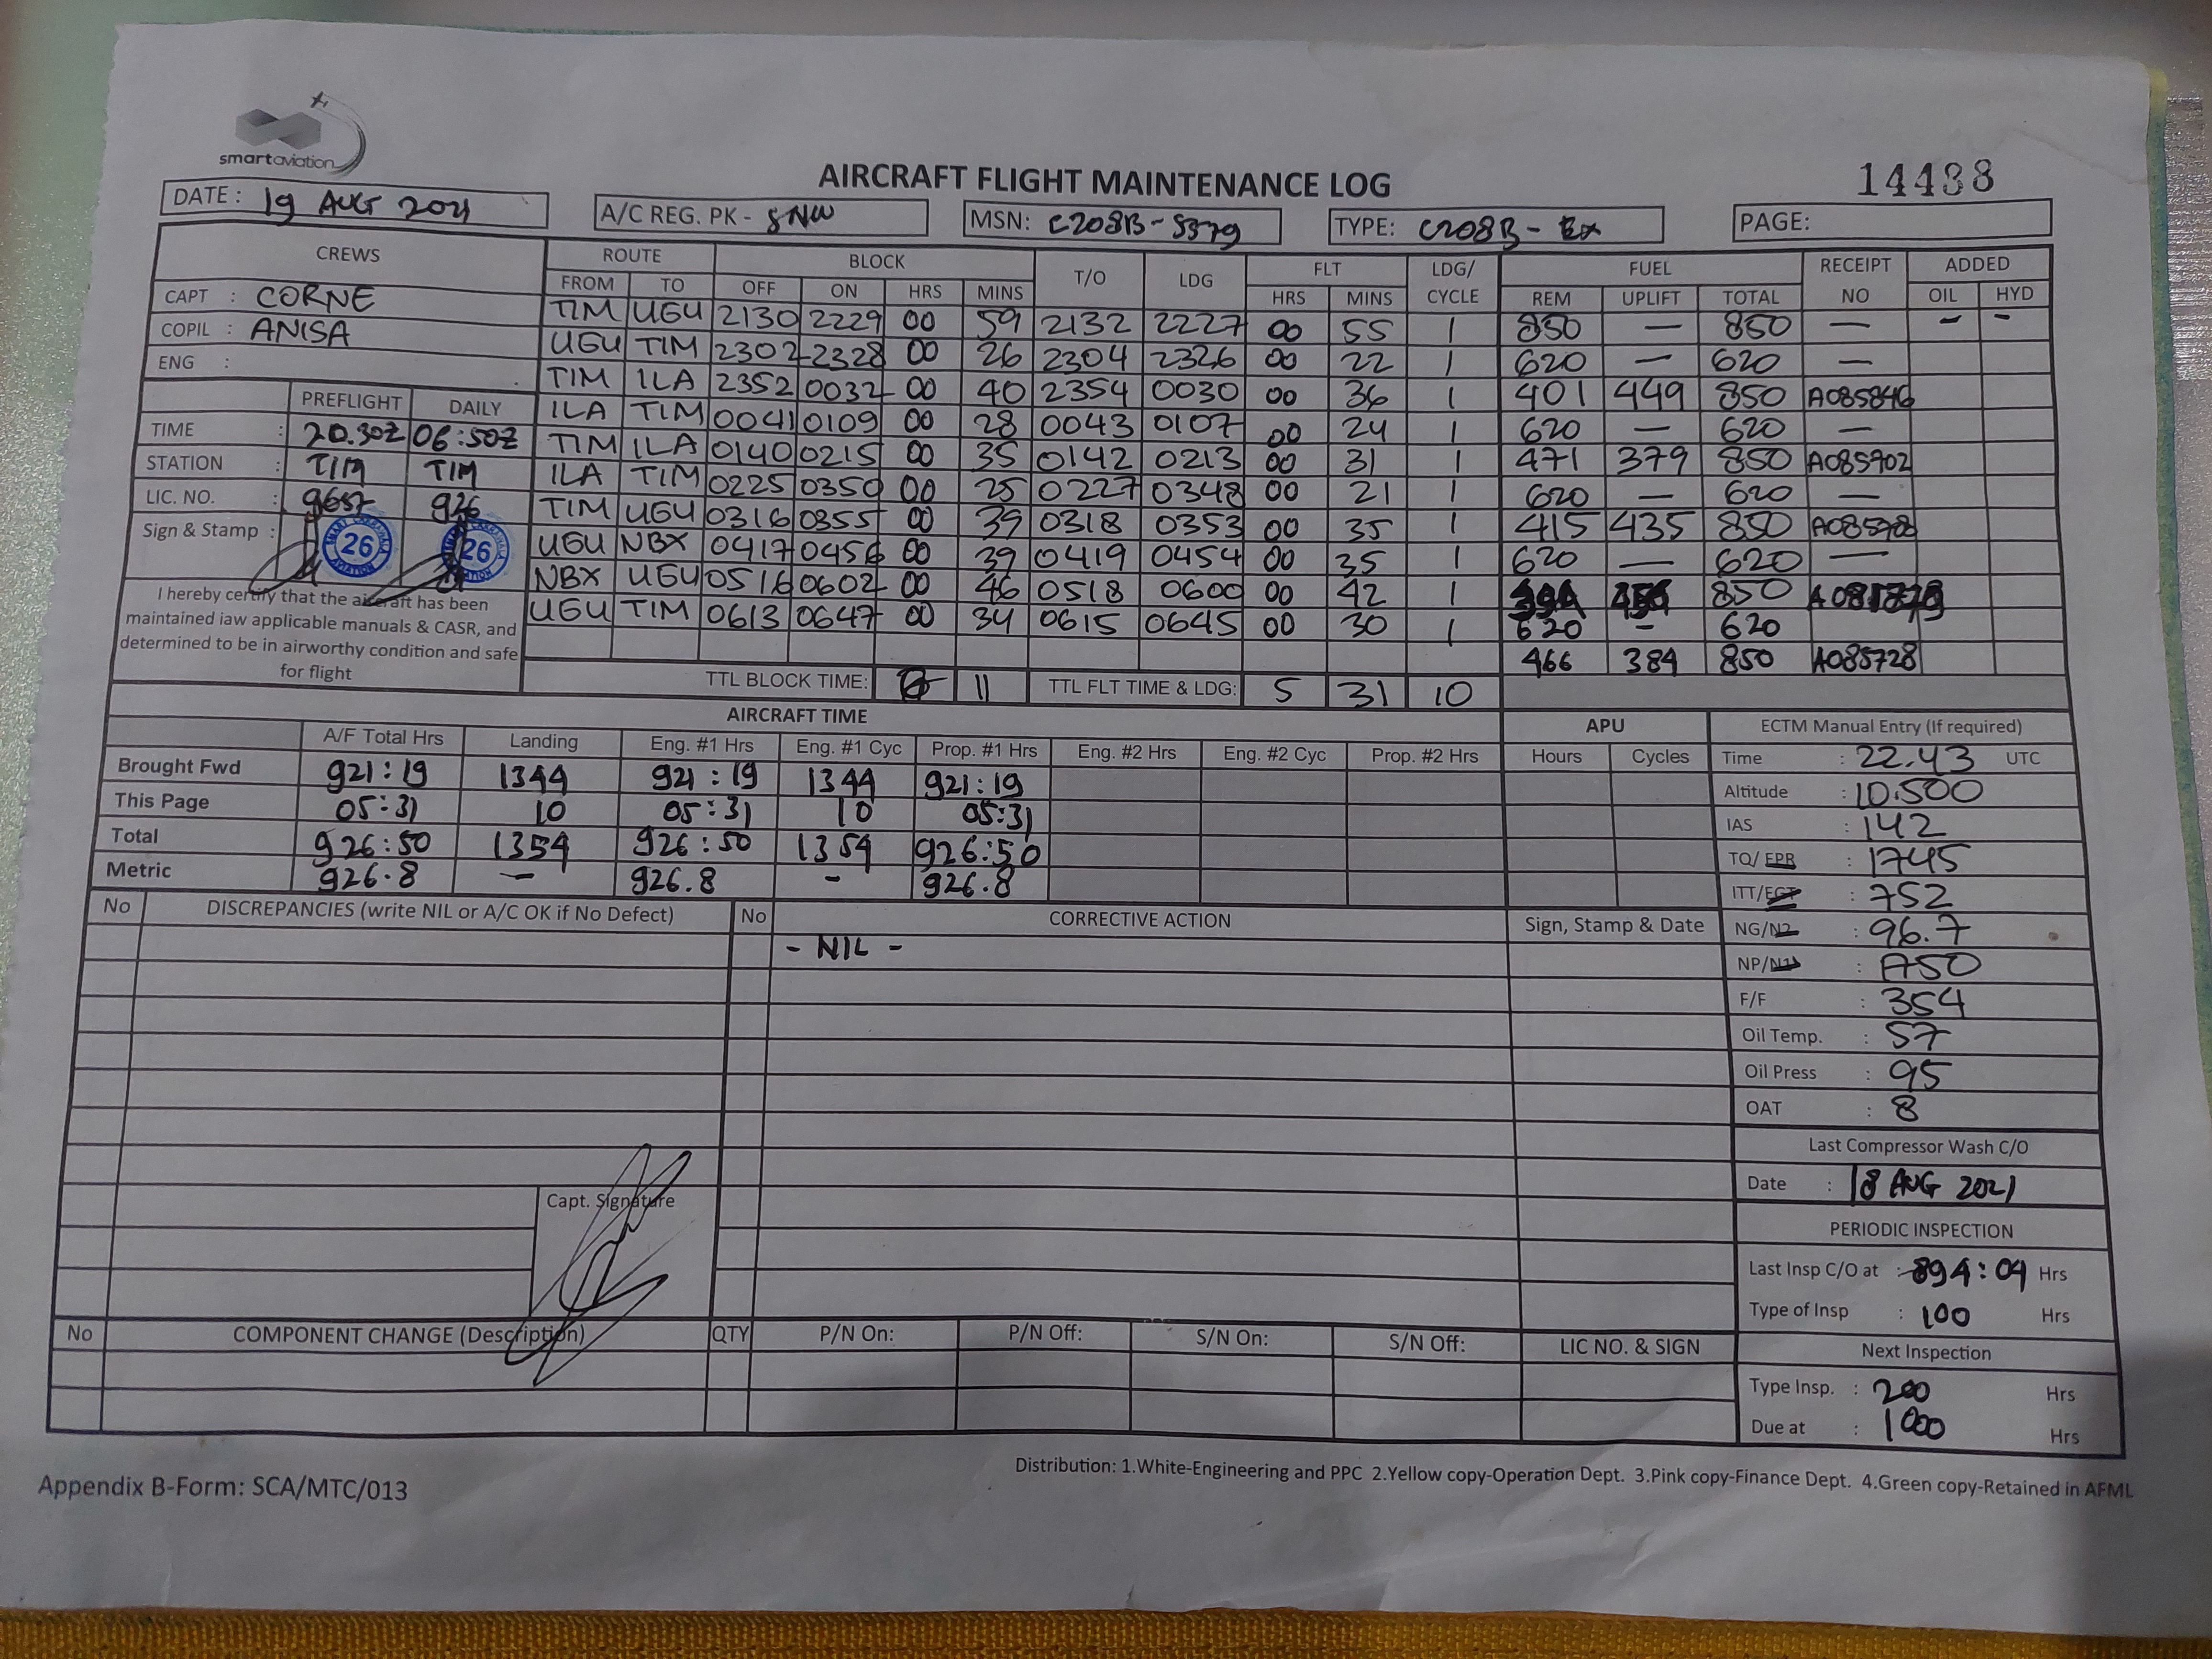 smartaviation
AIRCRAFT FLIGHT MAINTENANCE LOG
14438
DATE : 19 AUG 2021
A/C REG. PK - SNW
MSN: C208B-5379
TYPE: C208B - Ex
PAGE:
CREWS ROUTE BLOCK T/O LDG FLT LDG/ CYCLE FUEL RECEIPT NO ADDED
FROM TO OFF ON HRS MINS HRS MINS REM UPLIFT TOTAL OIL HYD
CAPT : CORNE
COPIL : ANISA
ENG :
TIM UGU 2130 2229 00 59 2132 2227 00 55 1 850 — 850 — - -
UGU TIM 2302 2328 00 26 2304 2326 00 22 1 620 — 620 —
TIM ILA 2352 0032 00 40 2354 0030 00 36 1 401 449 850 A085846
ILA TIM 0041 0109 00 28 0043 0107 00 24 1 620 — 620 —
TIM ILA 0140 0215 00 35 0142 0213 00 31 1 471 379 850 A085902
ILA TIM 0225 0350 00 25 0227 0348 00 21 1 620 — 620 —
TIM UGU 0316 0355 00 39 0318 0353 00 35 1 415 435 850
UGU NBX 0417 0456 00 39 0419 0454 00 35 1 620 — 620 —
NBX UGU 0516 0602 00 46 0518 0600 00 42 1 850
UGU TIM 0613 0647 00 34 0615 0645 00 30 1 620 - 620
466 384 850 A085728
PREFLIGHT DAILY
TIME : 20.30Z 06:50Z
STATION : TIM TIM
LIC. NO. : 9657 926
Sign & Stamp :
26 26
I hereby certify that the aircraft has been
maintained iaw applicable manuals & CASR, and
determined to be in airworthy condition and safe
for flight
TTL BLOCK TIME: 11 TTL FLT TIME & LDG: 5 31 10
AIRCRAFT TIME APU
A/F Total Hrs Landing Eng. #1 Hrs Eng. #1 Cyc Prop. #1 Hrs Eng. #2 Hrs Eng. #2 Cyc Prop. #2 Hrs Hours Cycles
Brought Fwd 921:19 1344 921:19 1344 921:19
This Page 05:31 10 05:31 10 05:31
Total 926:50 1354 926:50 1354 926:50
Metric 926.8 — 926.8 - 926.8
ECTM Manual Entry (If required)
Time : 22.43 UTC
Altitude : 10.500
IAS : 142
TQ/ EPR : 1745
ITT/EGT : 752
NG/N2 : 96.7
NP/N1 :
F/F : 354
Oil Temp. : 57
Oil Press : 95
OAT : 8
Last Compressor Wash C/O
Date : 18 AUG 2021
PERIODIC INSPECTION
Last Insp C/O at : 894:04 Hrs
Type of Insp : 100 Hrs
Next Inspection
Type Insp. : 200 Hrs
Due at : 1000 Hrs
No DISCREPANCIES (write NIL or A/C OK if No Defect) No CORRECTIVE ACTION Sign, Stamp & Date
- NIL -
Capt. Signature
No COMPONENT CHANGE (Description) QTY P/N On: P/N Off: S/N On: S/N Off: LIC NO. & SIGN
Distribution: 1.White-Engineering and PPC 2.Yellow copy-Operation Dept. 3.Pink copy-Finance Dept. 4.Green copy-Retained in AFML
Appendix B-Form: SCA/MTC/013